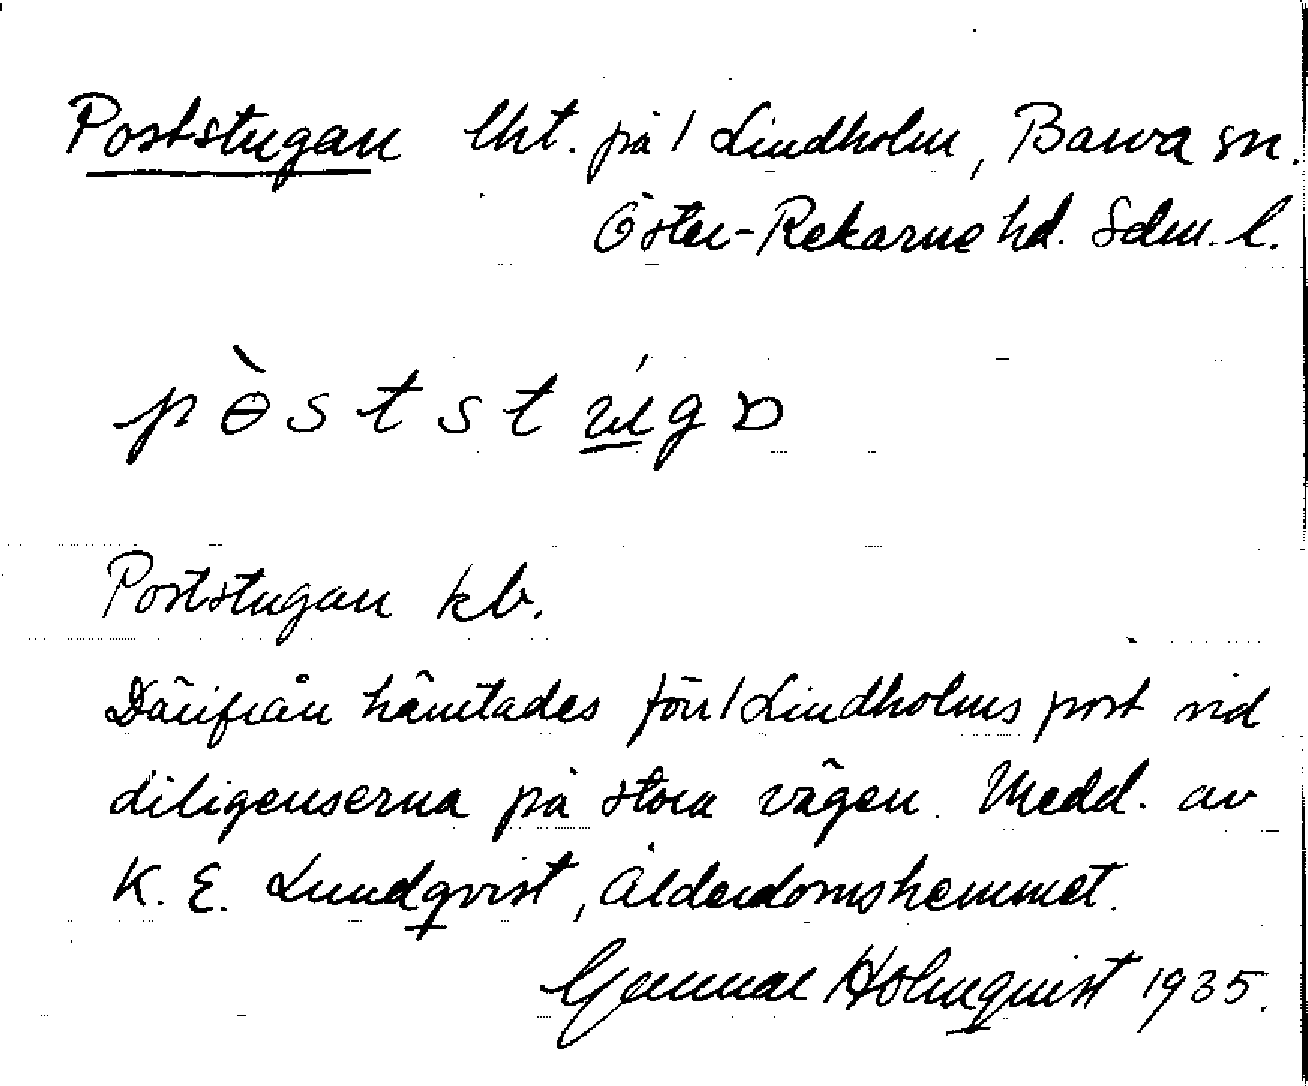 Poststugan lht. på / Lindholm, Barva sn.
Öster-Rekarne hd. Sdm. l.
pɵ̀ststúgɒ
Poststugan kb.
Därifrån hämtades förr / Lindholms post vid
diligenserna på stora vägen. Medd. av
K. E. Lundqvist, Ålderdomshemmet.
Gunnar Holmquist 1935.